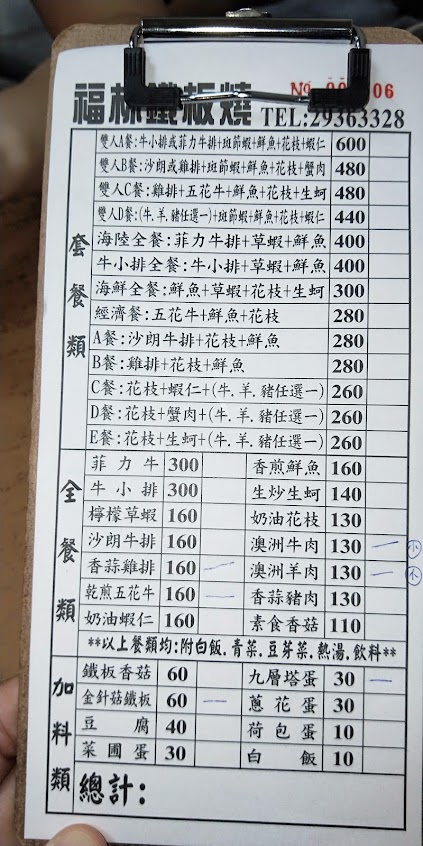 福林鐵板燒 TEL:29363328
套餐類
雙人A餐:牛小排或菲力牛排+斑節蝦+鮮魚+花枝+蝦仁 600
雙人B餐:沙朗或雞排+斑節蝦+鮮魚+花枝+蟹肉 480
雙人C餐:雞排+五花牛+鮮魚+花枝+生蚵 480
雙人D餐:(牛.羊.豬任選一)+斑節蝦+鮮魚+花枝+蝦仁 440
海陸全餐:菲力牛排+草蝦+鮮魚 400
牛小排全餐:牛小排+草蝦+鮮魚 400
海鮮全餐:鮮魚+草蝦+花枝+生蚵 300
經濟餐:五花牛+鮮魚+花枝 280
A餐:沙朗牛排+花枝+鮮魚 280
B餐:雞排+花枝+鮮魚 280
C餐:花枝+蝦仁+(牛.羊.豬任選一) 260
D餐:花枝+蟹肉+(牛.羊.豬任選一) 260
E餐:花枝+生蚵+(牛.羊.豬任選一) 260
全餐類
菲力牛 300 香煎鮮魚 160
牛小排 300 生炒生蚵 140
檸檬草蝦 160 奶油花枝 130
沙朗牛排 160 澳洲牛肉 130 一 小
香蒜雞排 160 一 澳洲羊肉 130 一
乾煎五花牛 160 一 香蒜豬肉 130
奶油蝦仁 160 素食香菇 110
**以上餐類均:附白飯.青菜.豆芽菜.熱湯.飲料**
加料類
鐵板香菇 60 九層塔蛋 30 一
金針菇鐵板 60 一 蔥花蛋 30
豆腐 40 荷包蛋 10
菜圃蛋 30 白飯 10
總計: